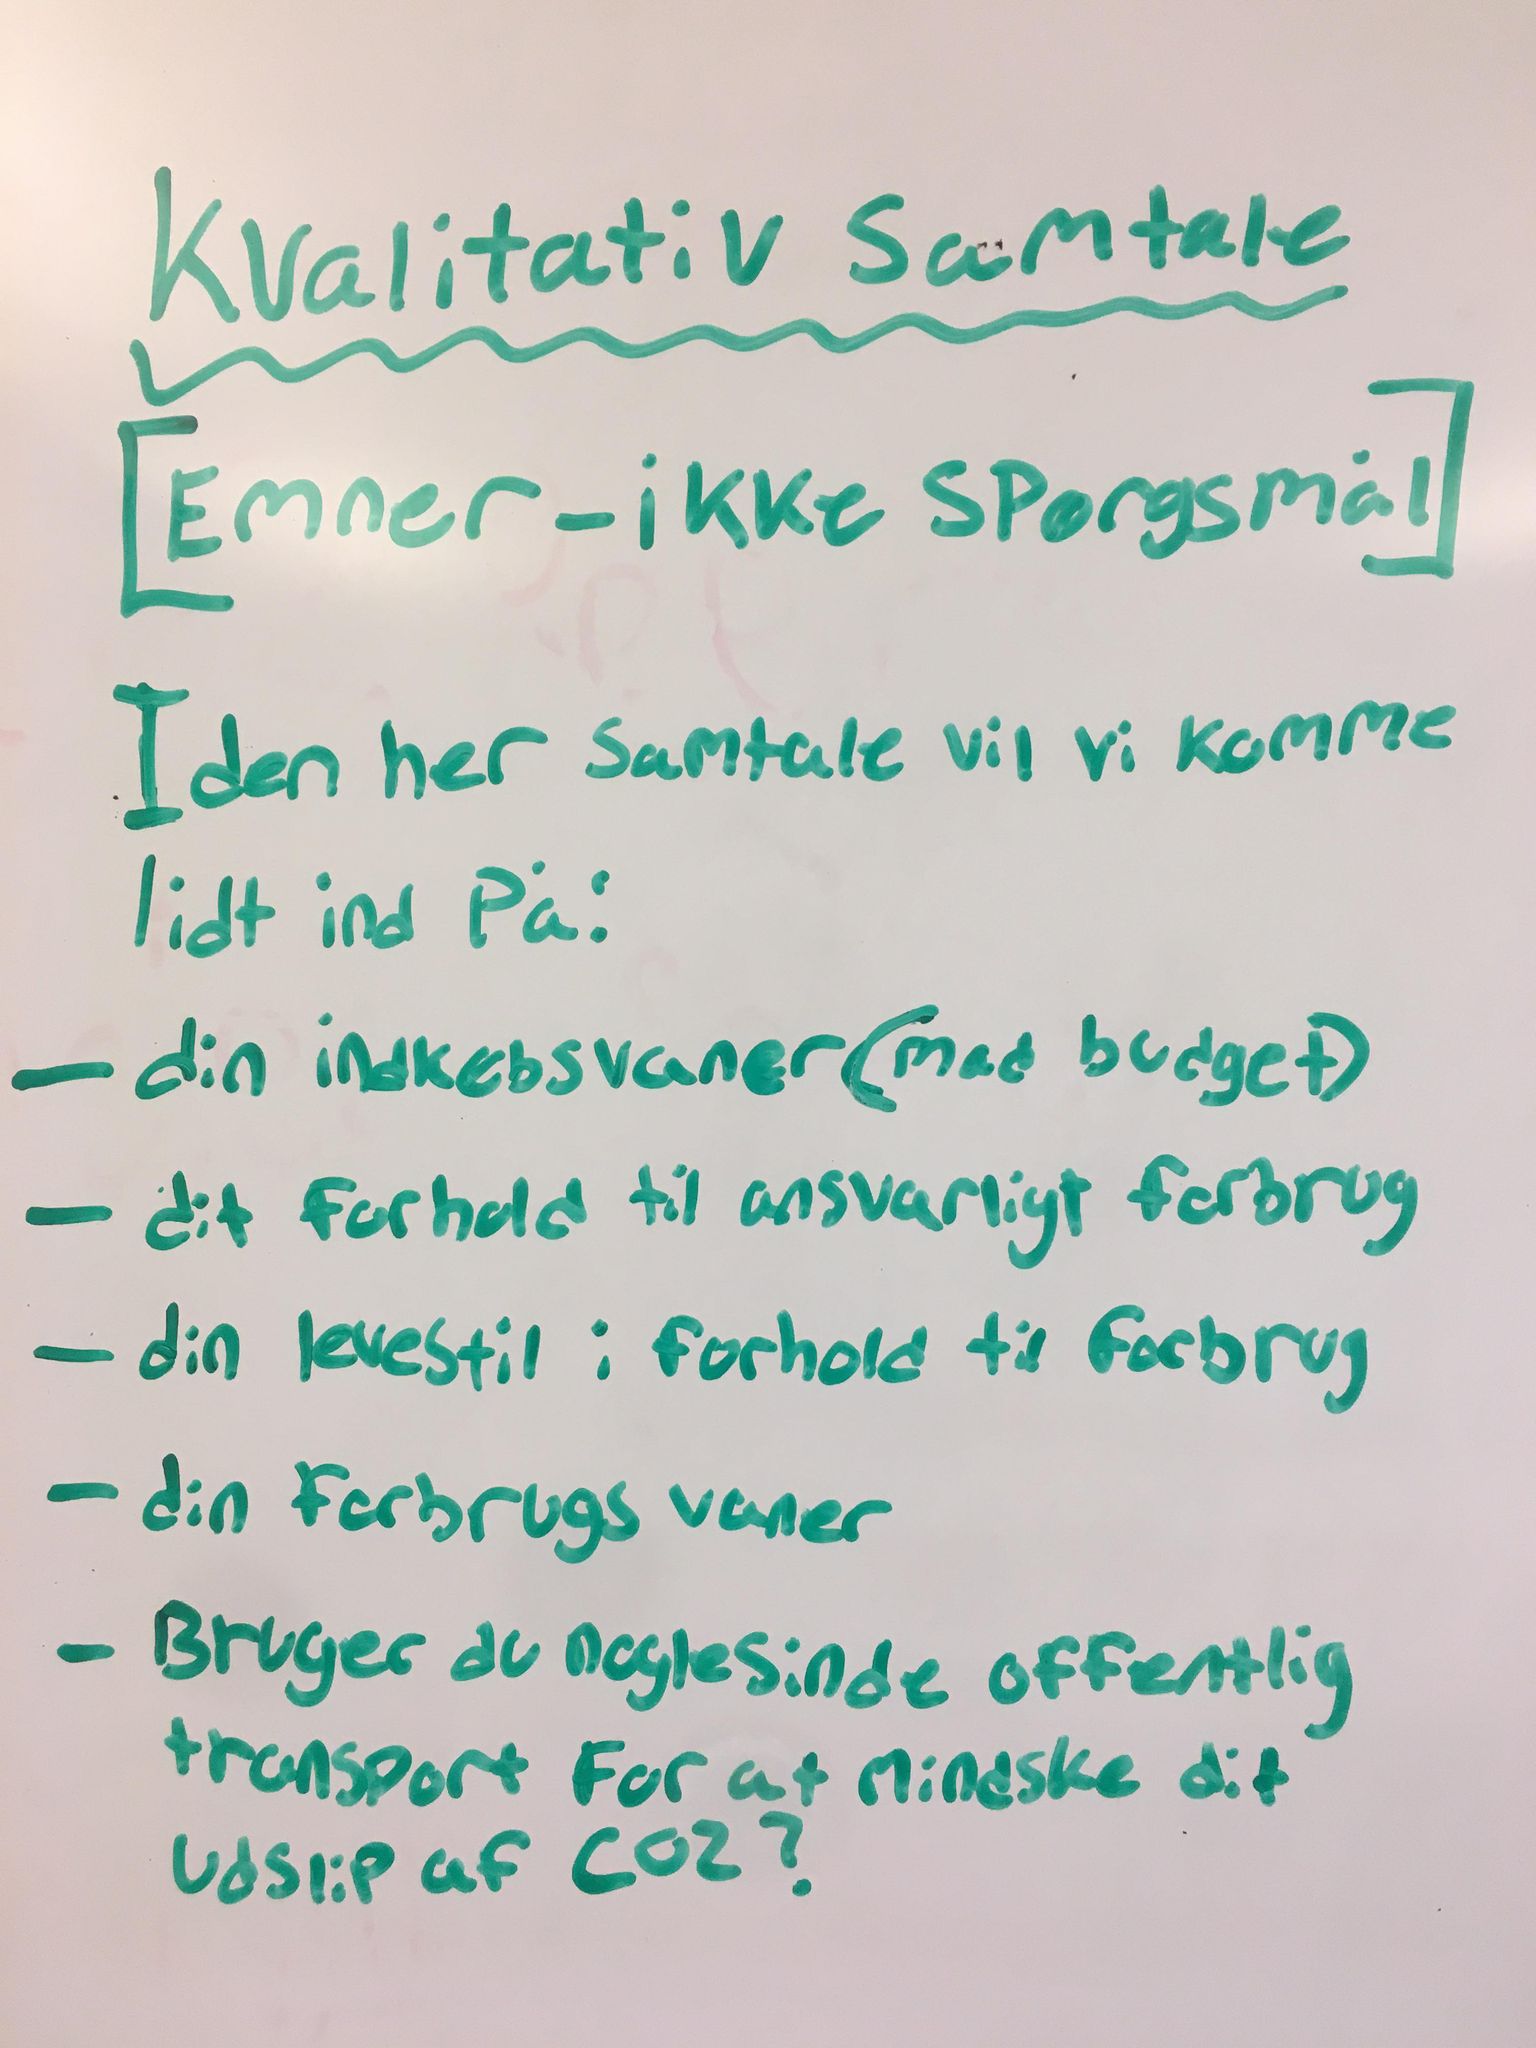 Kvalitativ Samtale
[Emner - ikke spørgsmål]
I den her samtale vil vi komme
lidt ind på:
- din indkøbsvaner (mad budget)
- dit forhold til ansvarligt forbrug
- din levestil i forhold til forbrug
- din forbrugs vaner
- Bruger du noglesinde offentlig
transport for at mindske dit
udslip af CO2?